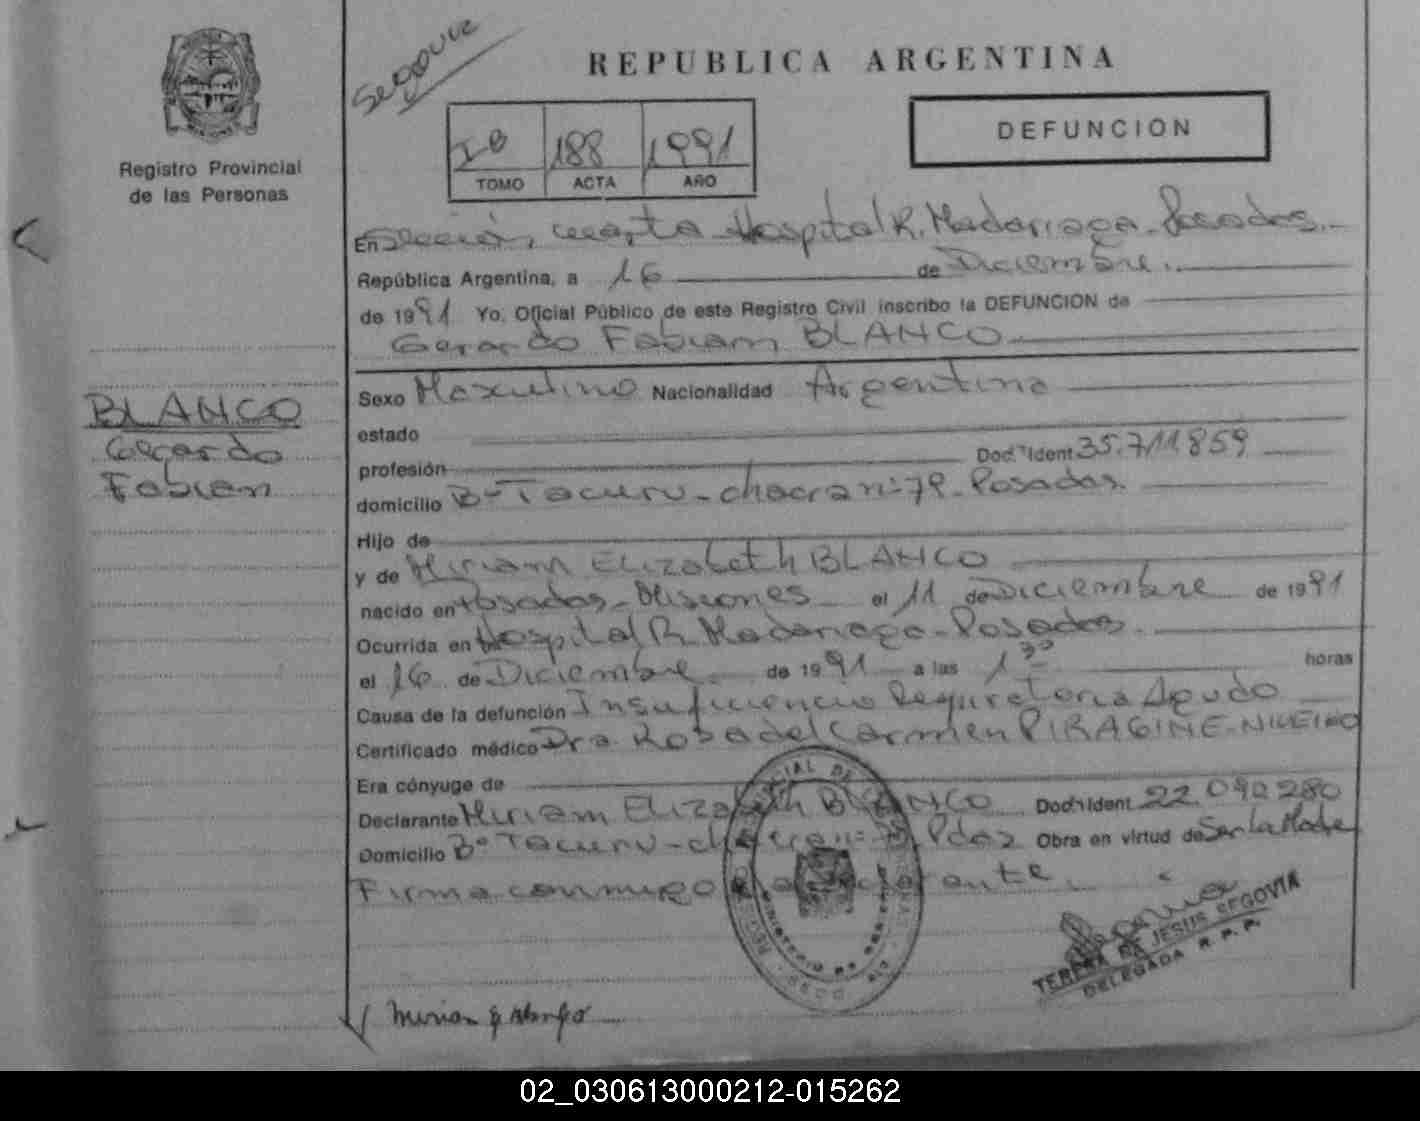 Segovia
REPUBLICA ARGENTINA
188 1991
TOMO ACTA AÑO
DEFUNCION
Registro Provincial
de las Personas
En Sección cuarta Hospital R. Madariaga - Posadas.-
República Argentina, a 16 de Diciembre.
de 1991 Yo, Oficial Público de este Registro Civil inscribo la DEFUNCION de
Gerardo Fabian BLANCO
BLANCO
Gerardo
Fabian
Sexo Masculino Nacionalidad Argentina
estado
profesión Doc. Ident 35.711859
domicilio Bº Tacuru - chacra nº 79 - Posadas
Hijo de
y de Miriam Elizabeth BLANCO
nacido en Posadas - Misiones el 11 de Diciembre de 1991
Ocurrida en Hospital R. Madariaga - Posadas.
el 16 de Diciembre de 1991 a las 1 30 horas
Causa de la defunción Insuficiencia Respiratoria Aguda
Certificado médico Dra. Rosa del Carmen PIRAGINE-NIVEIRO
Era cónyuge de
Declarante Miriam Elizabeth BLANCO Doc. Ident 22.092280
Domicilio Bº Tacuru - Pdas Obra en virtud de Ser La Madre
Firma conmigo
TERESA DE JESUS SEGOVIA
DELEGADA R. P. P.
02_030613000212-015262